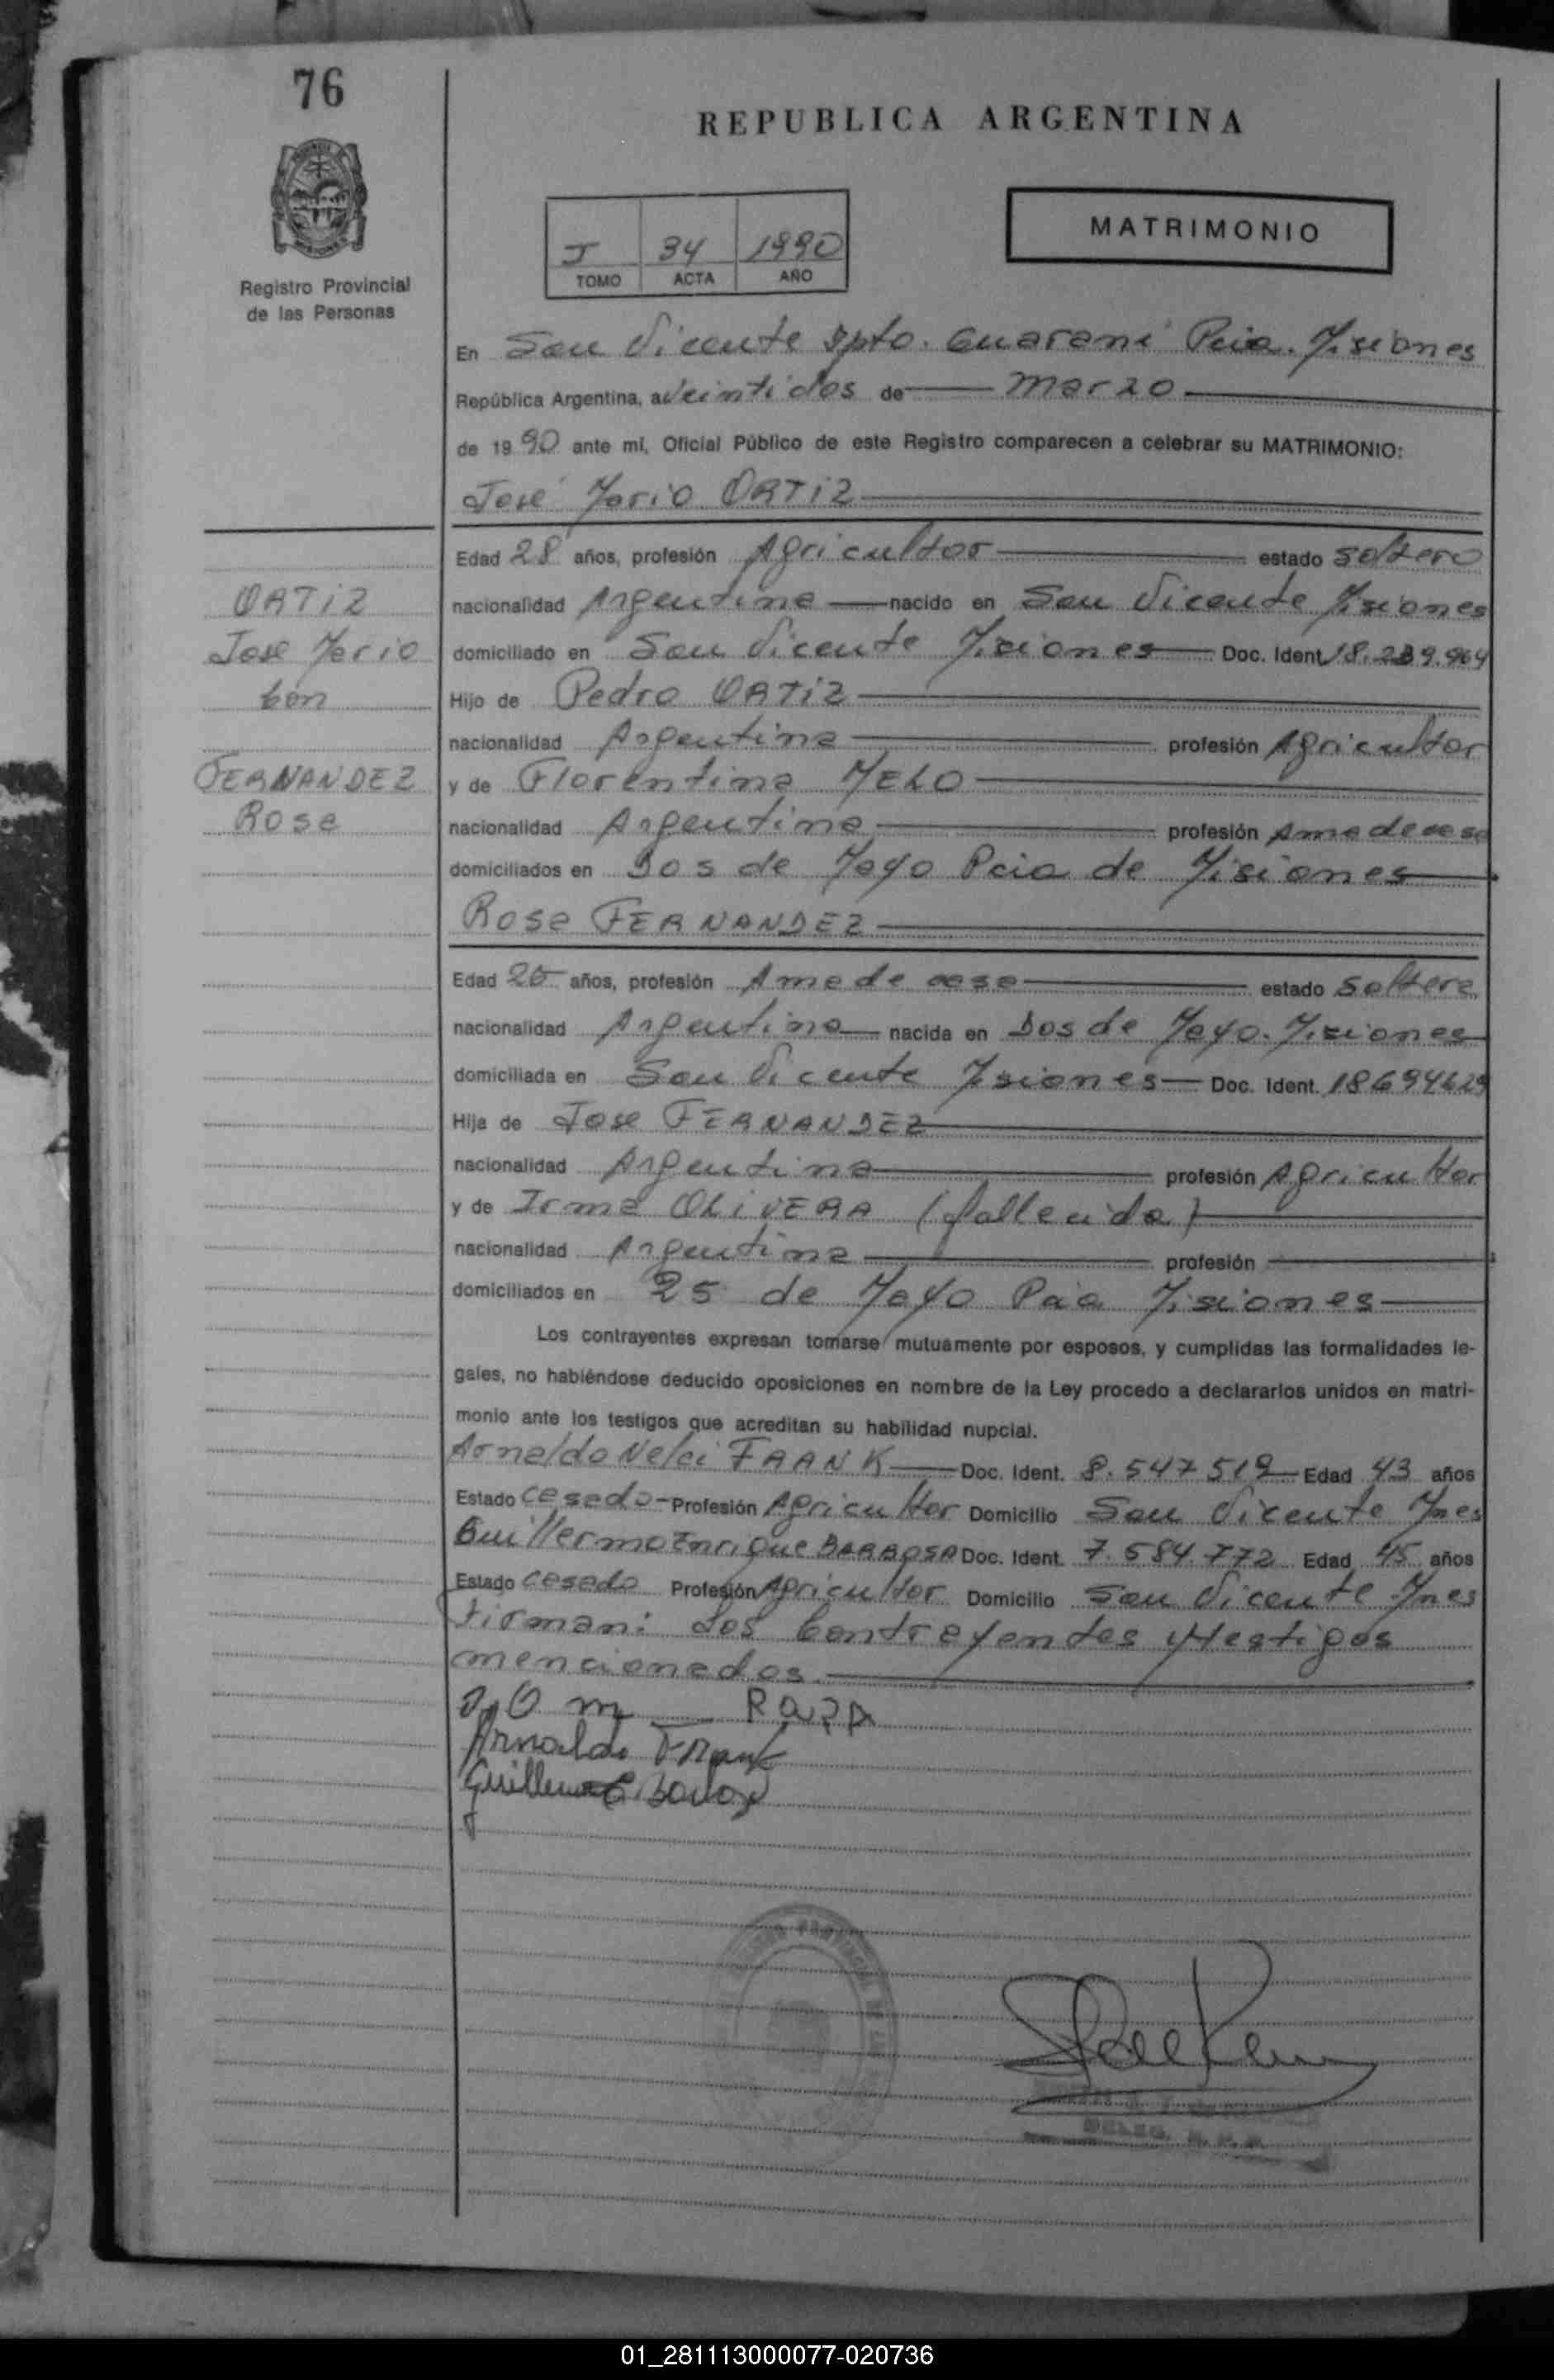 76
REPUBLICA ARGENTINA
MATRIMONIO
34 1990
TOMO ACTA AÑO
Registro Provincial
de las Personas
En San Vicente Dpto. Guarani Pcia. Misiones
República Argentina, a veintidos de marzo
de 1990 ante mí, Oficial Público de este Registro comparecen a celebrar su MATRIMONIO:
José Mario ORTIZ
Edad 28 años, profesión Agricultor estado soltero
ORTIZ
nacionalidad Argentina nacido en San Vicente Misiones
Jose Mario
domiciliado en San Vicente Misiones Doc. Ident
con
Hijo de Pedro ORTIZ
nacionalidad Argentina profesión Agricultor
FERNANDEZ
y de Florentina MELO
Rosa
nacionalidad Argentina profesión Ama de casa
domiciliados en Dos de Mayo Pcia de Misiones
Rosa FERNANDEZ
Edad 25 años, profesión Ama de casa estado soltera
nacionalidad Argentina nacida en Dos de Mayo. Misiones
domiciliada en San Vicente Misiones Doc. Ident. 18694629
Hija de Jose FERNANDEZ
nacionalidad Argentina profesión Agricultor
y de Irma OLIVERA (fallecida)
nacionalidad Argentina profesión
domiciliados en 25 de Mayo Pcia Misiones
Los contrayentes expresan tomarse mutuamente por esposos, y cumplidas las formalidades le-
gales, no habiéndose deducido oposiciones en nombre de la Ley procedo a declararlos unidos en matri-
monio ante los testigos que acreditan su habilidad nupcial.
Arnaldo Nelci FRANK Doc. Ident. 8.547519 Edad 43 años
Estado casado Profesión Agricultor Domicilio San Vicente Mnes
Guillermo Enrique BARBOSA Doc. Ident. 7.584.772 Edad 45 años
Estado casado Profesión Agricultor Domicilio San Vicente Mnes
Firman: Los Contrayentes y testigos
mencionados.
J O m ROZA
Arnaldo Frank
Guillermo E.
DELEG. R. P. P.
01_281113000077-020736